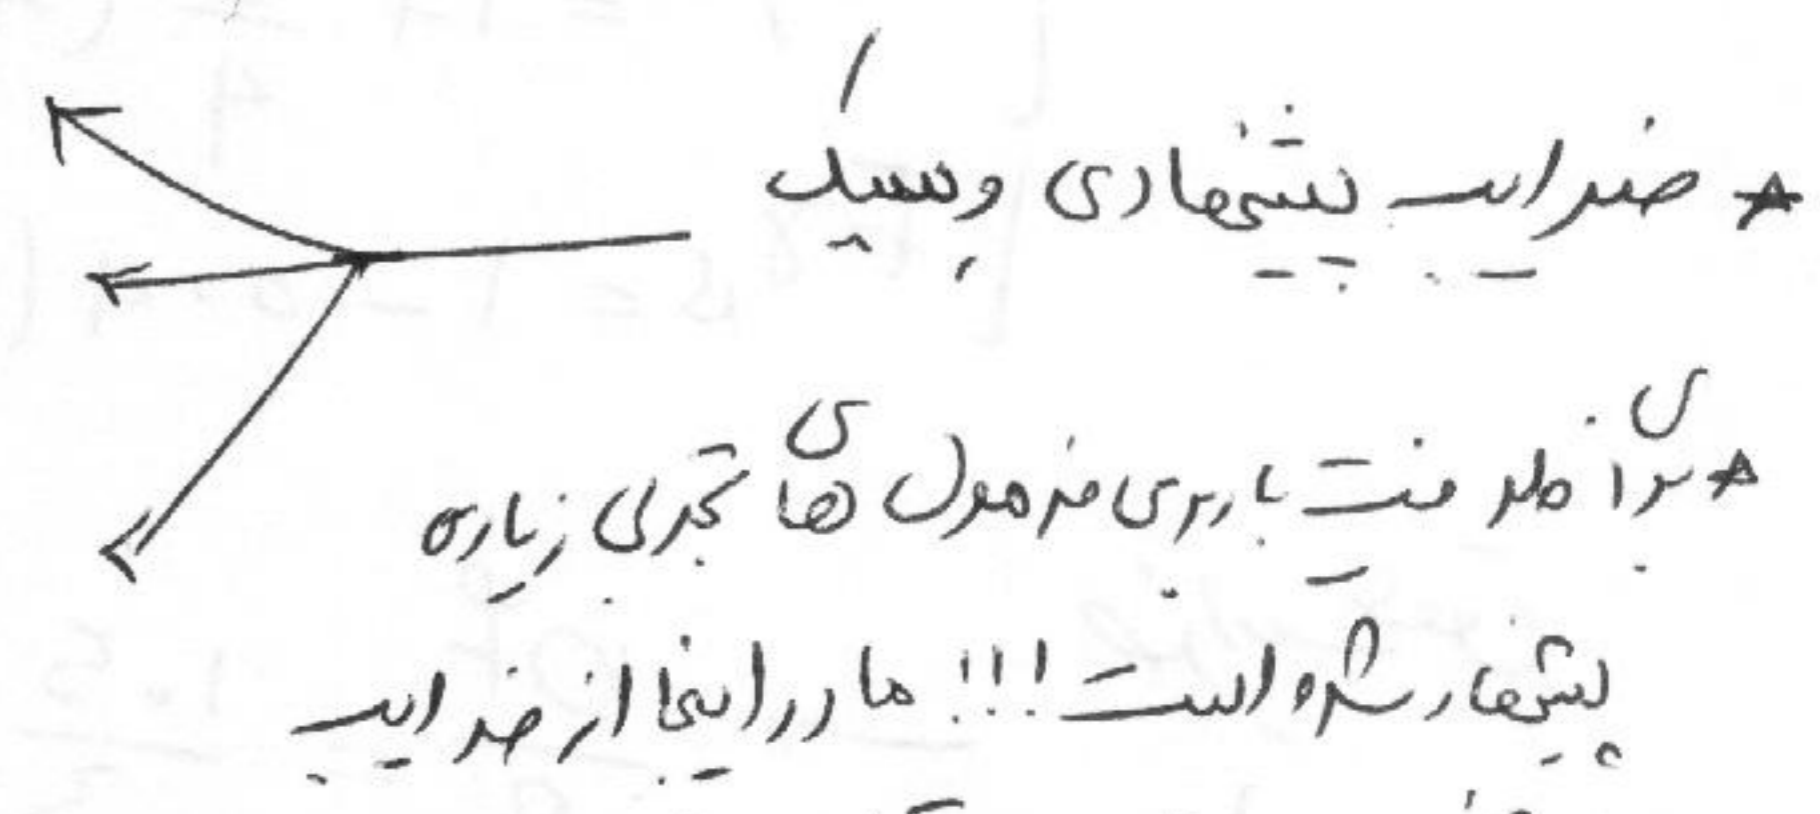 * ضرایب پیشنهادی وسیک
* برای ظرفیت باربری فرمول های تجربی زیاده
پیشنهاد شده است !!! ما در اینجا از ضرایب